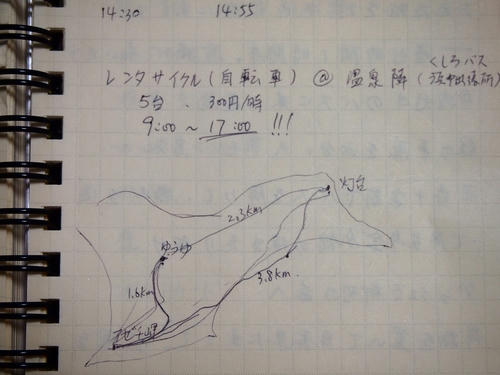 14:30 14:55
レンタサイクル(自転車) @ 温泉隣(くしろバス
5台、300円/時
9:00~17:00 !!!
灯台
2.3km
ゆうゆ
3.8km
1.6km